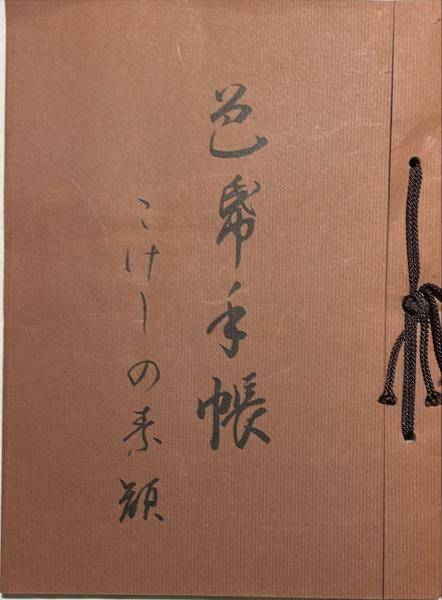 手帳
こけしの素顔